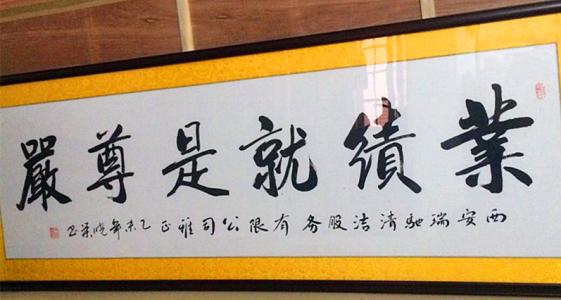 業績就是尊嚴
西安瑞驰清洁服务有限公司雅正 乙未年晓